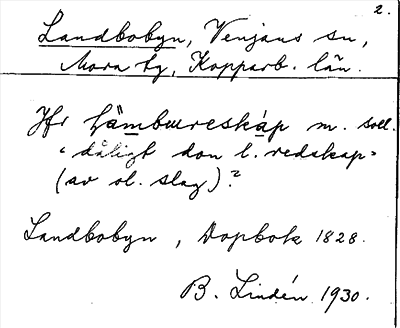 2.
Landbobyn, Venjans sn,
Mora tg, Kopparb. län.
Jfr lämbureskáp m. soll.
"dåligt don l. redskap"
(av ol. slag)?
Landbobyn, Dopbok 1828.
B. Lindén 1930.